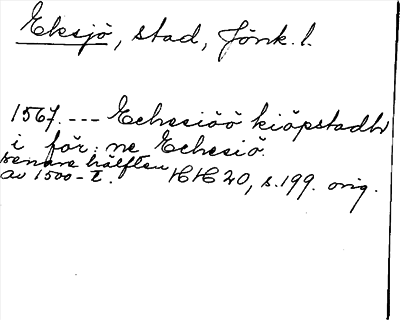 Eksjö, stad, Jönk. l.
1567. --- Echesiöö kiöpstadh
i för: ne Echesiö.
senare hälften
av 1500-t. HH 20, s. 199. orig.